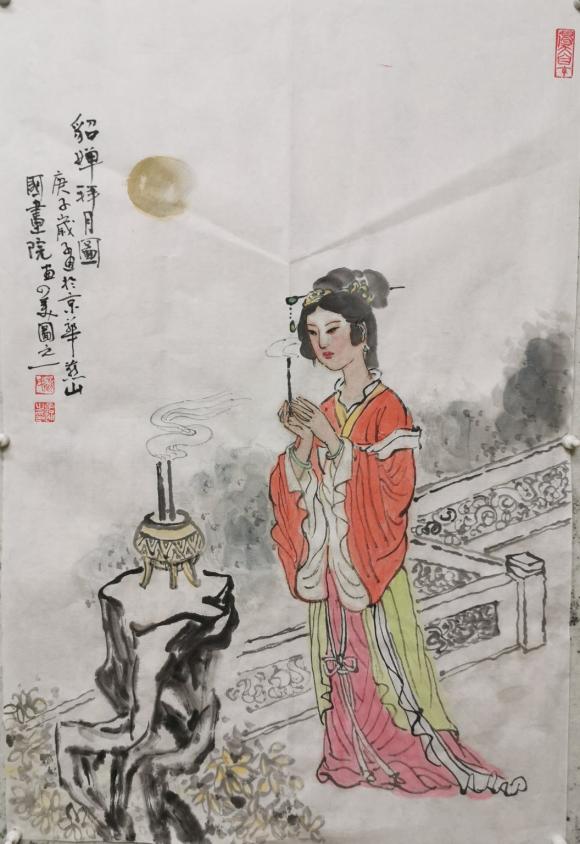 貂蝉拜月圖
庚子歲画於京華燕山
國畫院画四美圖之一